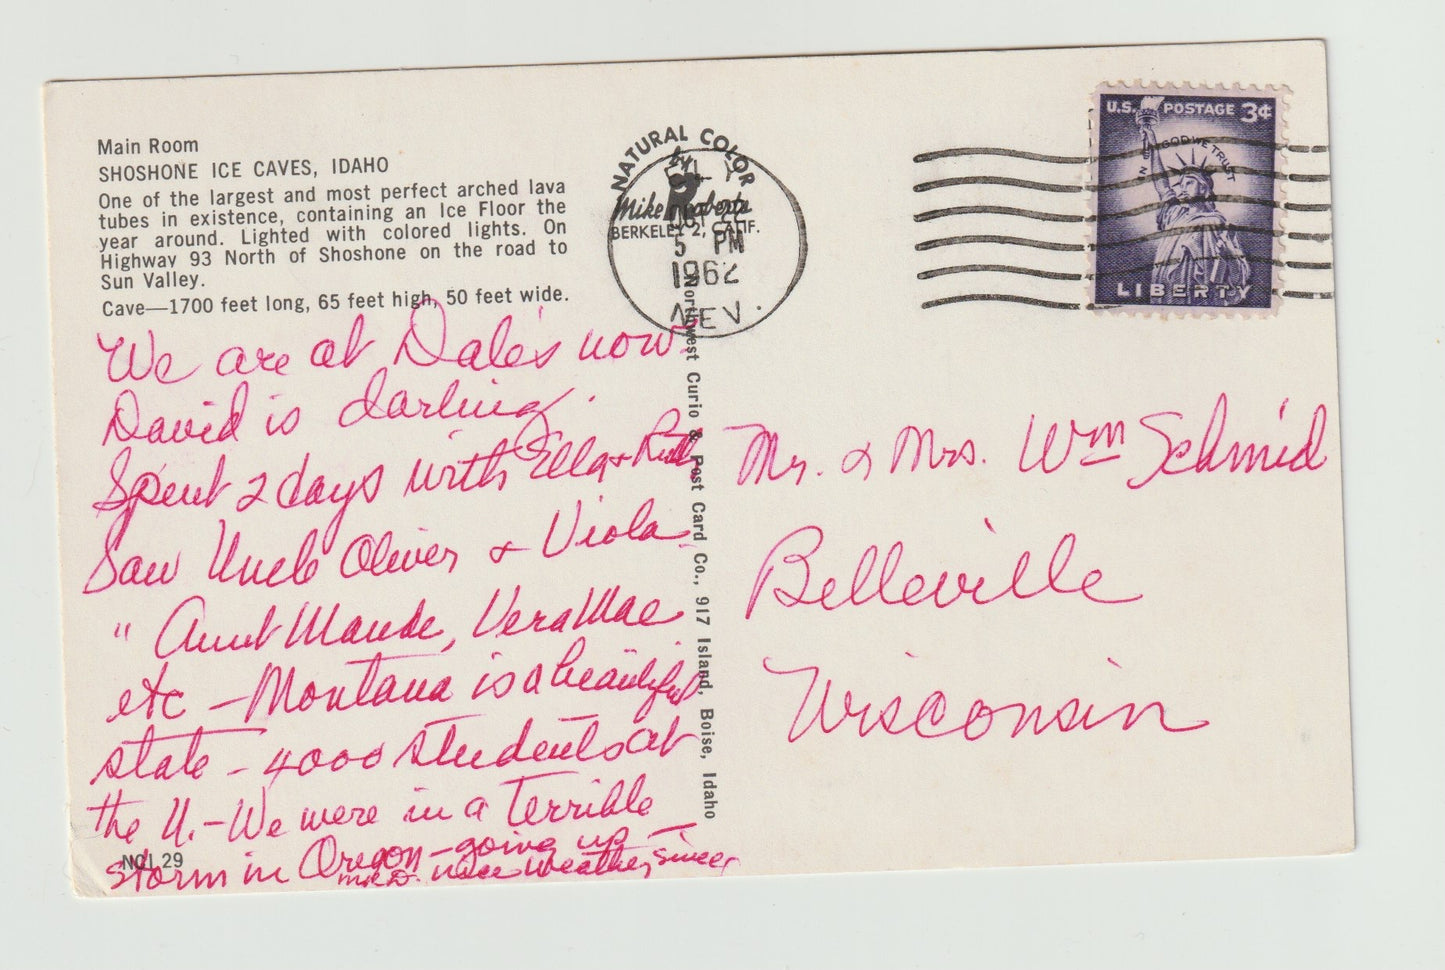 Main Room
SHOSHONE ICE CAVES, IDAHO
One of the largest and most perfect arched lava
tubes in existence, containing an Ice Floor the
year around. Lighted with colored lights. On
Highway 93 North of Shoshone on the road to
Sun Valley.
Cave—1700 feet long, 65 feet high, 50 feet wide.
We are at Dale's now.
David is darling.
Spent 2 days with Ella +
Saw Uncle Oliver + Viola
" Aunt Maude, Vera Mae
etc - Montana is a beautiful
state - 4000 students at
the U. - We were in a terrible
storm in Oregon - going up
nice weather since
NCI 29
NATURAL COLOR
by
Mike Roberts
BERKELEY 2, CALIF.
ELY
OCT
5 PM
1962
NEV.
Northwest Curio & Post Card Co., 917 Island, Boise, Idaho
U.S. POSTAGE 3¢
IN GOD WE TRUST
LIBERTY
Mr. & Mrs. Wm Schmid
Belleville
Wisconsin